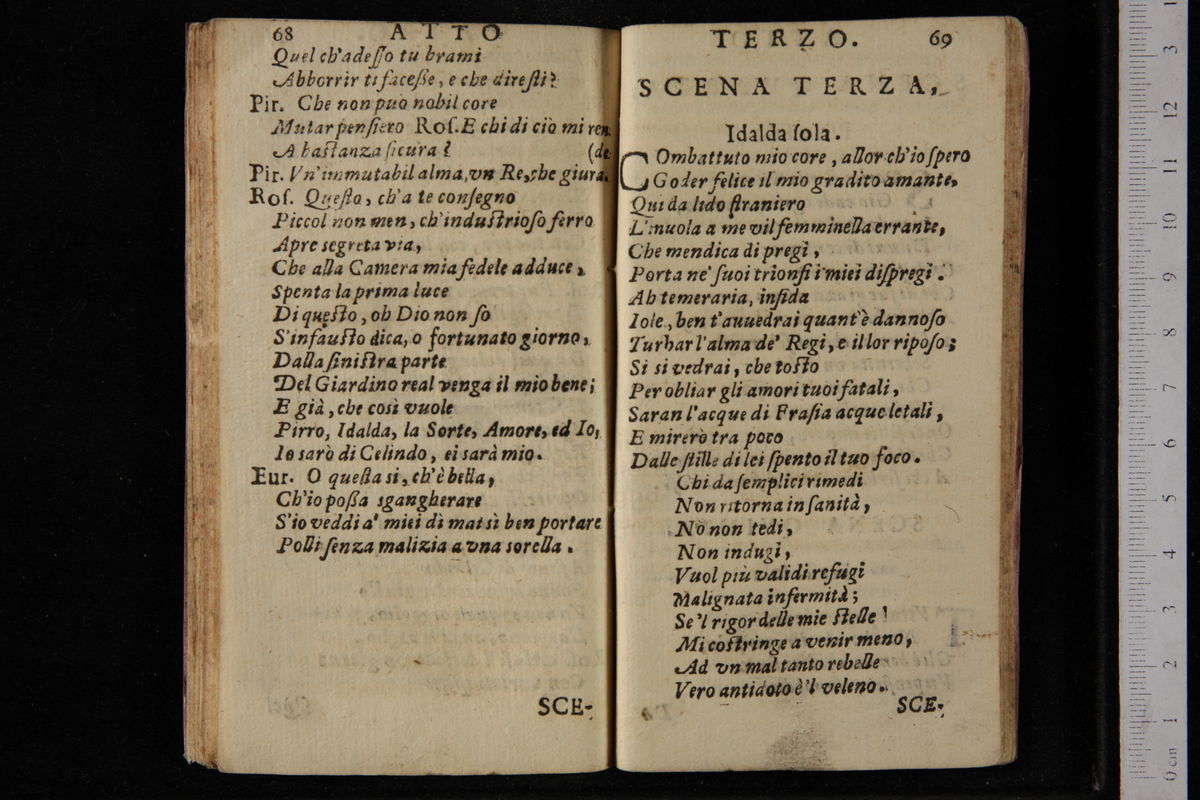 68 ATTO
Quel ch'adeſſo tu brami
Abborrir ti faceſſe, e che direſti?
Pir. Che non può nobil core
Mutar penſiero Roſ. E chi di ciò mi ren-
A baſtanza ſicura? (de
Pir. Vn'immutabil alma, vn Re, che giura.
Roſ. Queſto, ch'a te conſegno
Piccol non men, ch'induſtrioſo ferro
Apre segreta via,
Che alla Camera mia fedele adduce,
Spenta la prima luce
Di queſto, oh Dio non ſo
S'infauſto dica, o fortunato giorno,
Dalla ſiniſtra parte
Del Giardino real venga il mio bene;
E già, che così vuole
Pirro, Idalda, la Sorte, Amore, ed Io,
Io sarò di Celindo, ei sarà mio.
Eur. O queſta si, ch'è bella,
Ch'io poſſa sgangherare
S'io veddi a' miei dì mai sì ben portare
Polli ſenza malizia a vna sorella.
SCE-
TERZO. 69
SCENA TERZA,
Idalda ſola.
COmbattuto mio core, allor ch'io ſpero
Goder felice il mio gradito amante,
Qui da lido ſtraniero
L'inuola a me vil femminella errante,
Che mendica di pregi,
Porta ne' ſuoi trionfi i miei diſpregi.
Ah temeraria, infida
Iole, ben t'auuedrai quant'è dannoſo
Turbar l'alma de' Regi, e il lor ripoſo;
Si si vedrai, che toſto
Per obliar gli amori tuoi fatali,
Saran l'acque di Fraſia acque letali,
E mirerò tra poco
Dalle ſtille di lei ſpento il tuo foco.
Chi da ſemplici rimedi
Non ritorna in ſanità,
Nò non tedi,
Non indugi,
Vuol più validi refugi
Malignata infermità;
Se'l rigor delle mie ſtelle
Mi coſtringe a venir meno,
Ad vn mal tanto rebelle
Vero antidoto è'l veleno.
SCE-